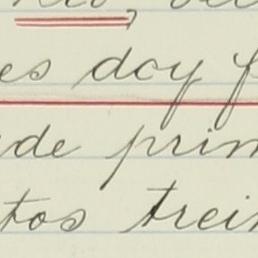 es doy f
de prim
tos trein